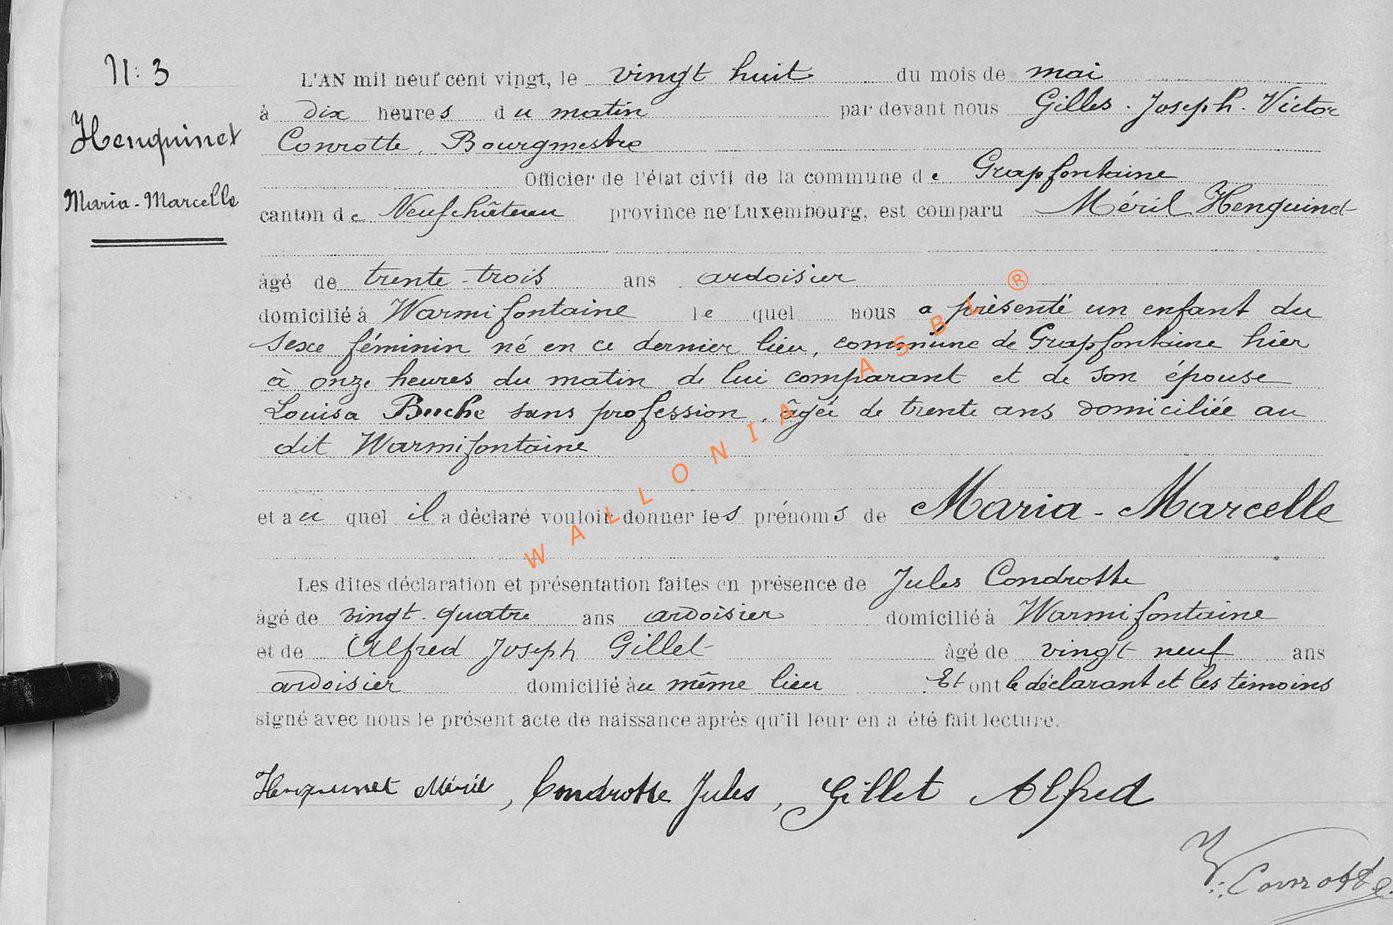 N: 3
Henquinet
Maria-Marcelle
L'AN mil neuf cent vingt, le vingt huit du mois de mai
à dix heures du matin par devant nous Gilles-Joseph-Victor
Conrotte, Bourgmestre
Officier de l'état civil de la commune de Grapfontaine
canton de Neufchâteau province de Luxembourg, est comparu Méril Henquinet
âgé de trente-trois ans ardoisier
domicilié à Warmifontaine lequel nous a présenté un enfant du
sexe féminin né en ce dernier lieu, commune de Grapfontaine hier
à onze heures du matin de lui comparant et de son épouse
Louisa Buche sans profession, âgée de trente ans domiciliée au
dit Warmifontaine
et auquel il a déclaré vouloir donner les prénoms de Maria-Marcelle
Les dites déclaration et présentation faites en présence de Jules Condrotte
âgé de vingt-quatre ans ardoisier domicilié à Warmifontaine
et de Alfred Joseph Gillet âgé de vingt neuf ans
ardoisier domicilié au même lieu Et ont le déclarant et les témoins
signé avec nous le présent acte de naissance après qu'il leur en a été fait lecture.
Henquinet Méril, Condrotte Jules, Gillet Alfred
V. Conrotte
WALLONIA ASBL ®